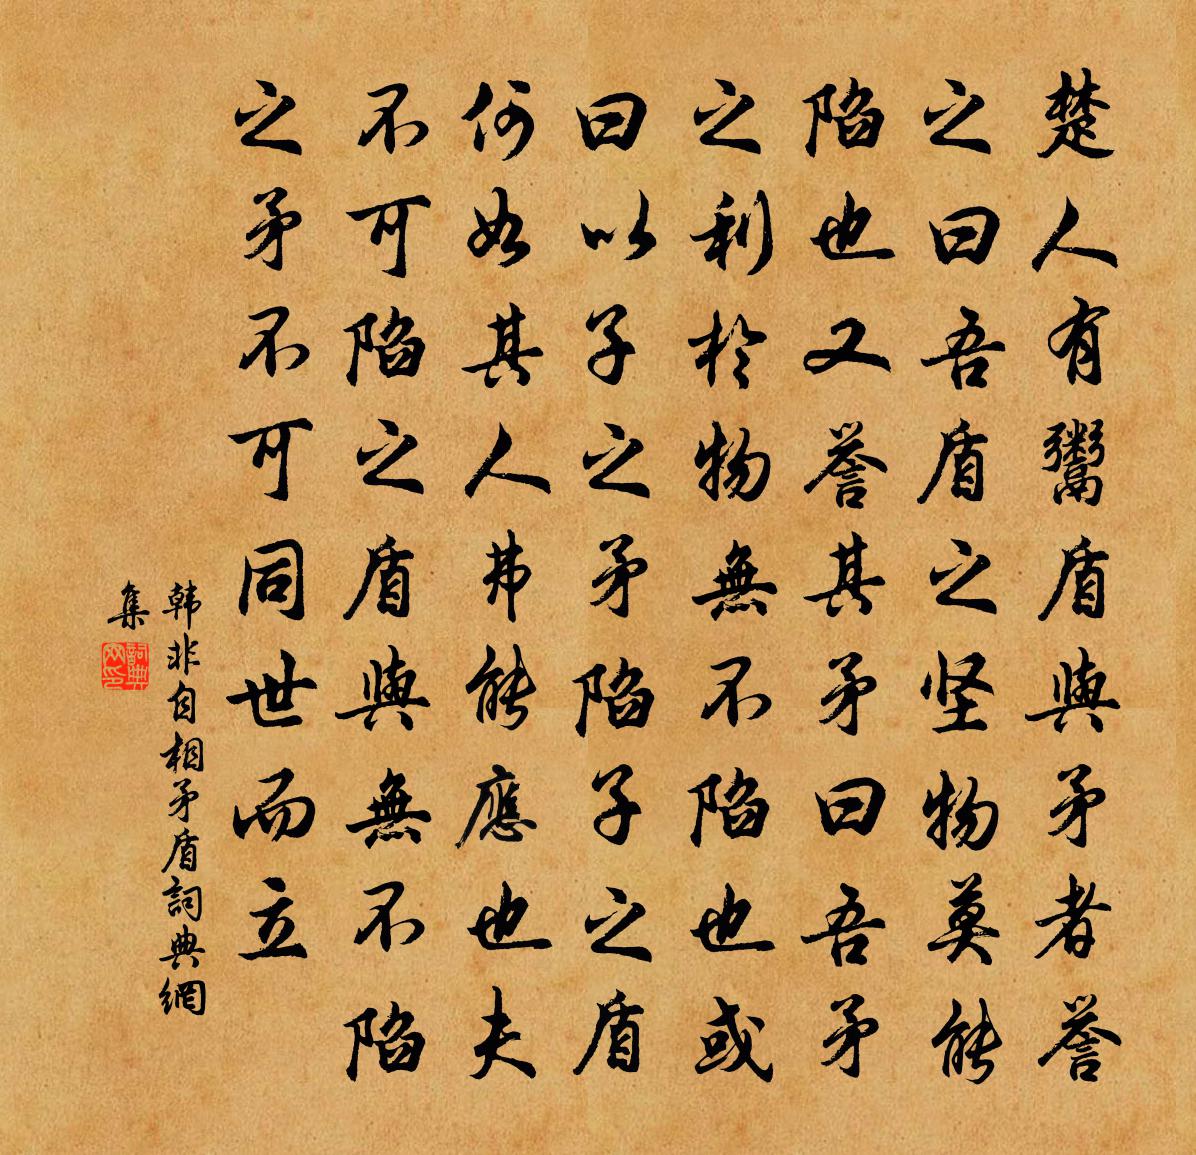 楚人有鬻盾與矛者誉
之曰吾盾之坚物莫能
陷也又誉其矛曰吾矛
之利於物無不陷也或
曰以子之矛陷子之盾
何如其人弗能應也夫
不可陷之盾與無不陷
之矛不可同世而立
韩非自相矛盾詞典網
集
詞典
网印